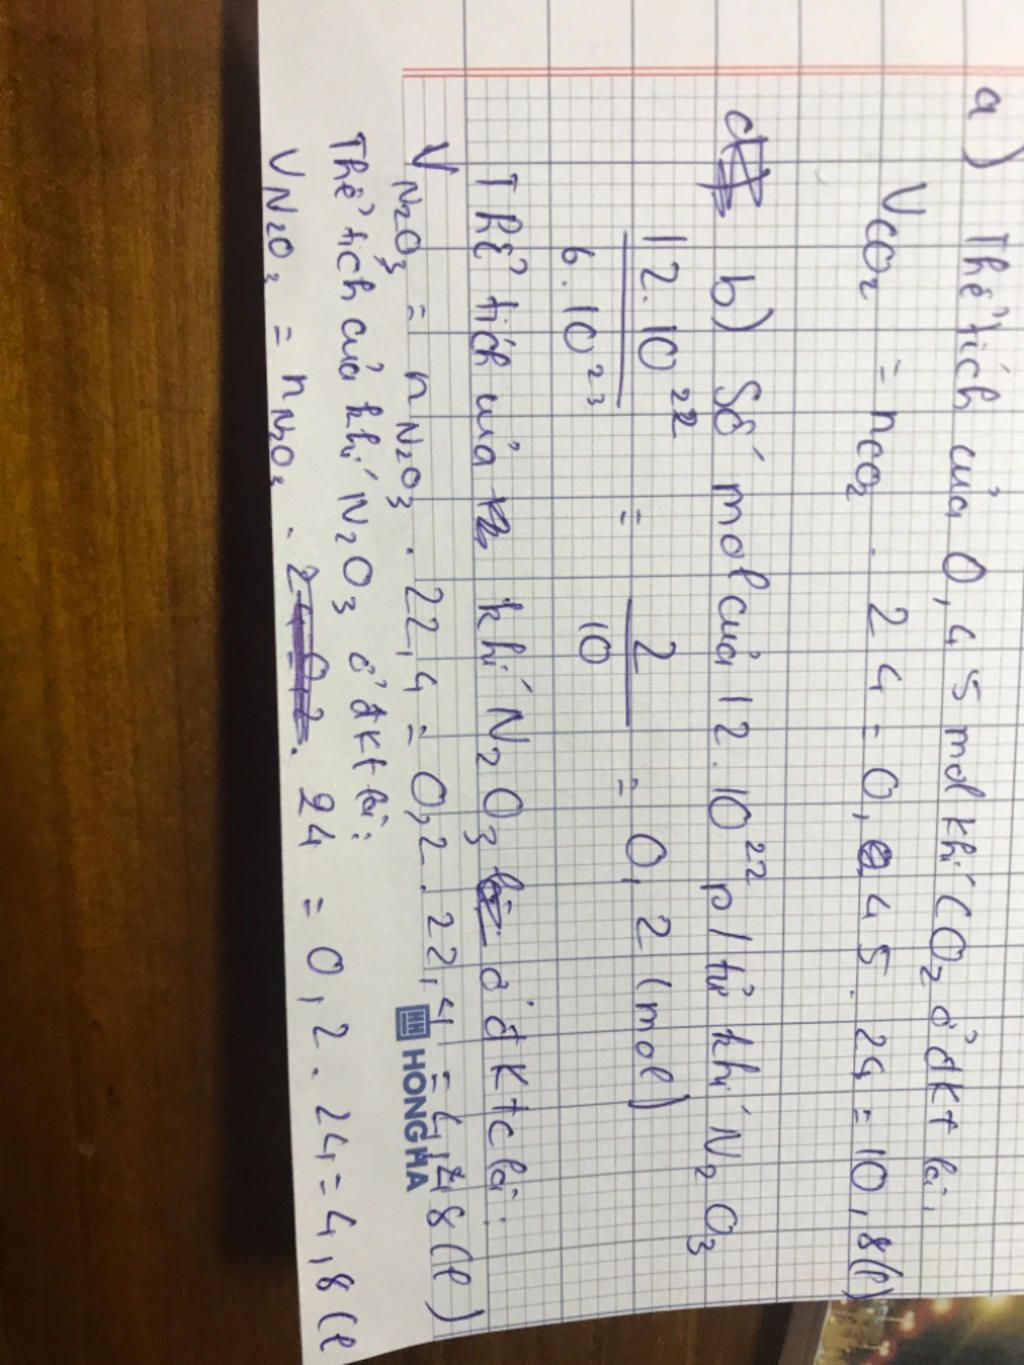 a) Thể tích của 0,45 mol khí CO₂ ở đkt là:
V CO₂ = nCO₂ . 24 = 0,45 . 24 = 10,8(l)
b) Số mol của 12.10²² p/tử khí N₂O₃
12.10²² / 6.10²³ = 2/10 = 0,2 (mol)
Thể tích của khí N₂O₃ ở đktc là:
V N₂O₃ = n N₂O₃ . 22,4 = 0,2 . 22,4 = 4,48(l)
HONG HA
Thể tích của khí N₂O₃ ở đkt là:
V N₂O₃ = n N₂O₃ . 24 = 0,2 . 24 = 4,8(l